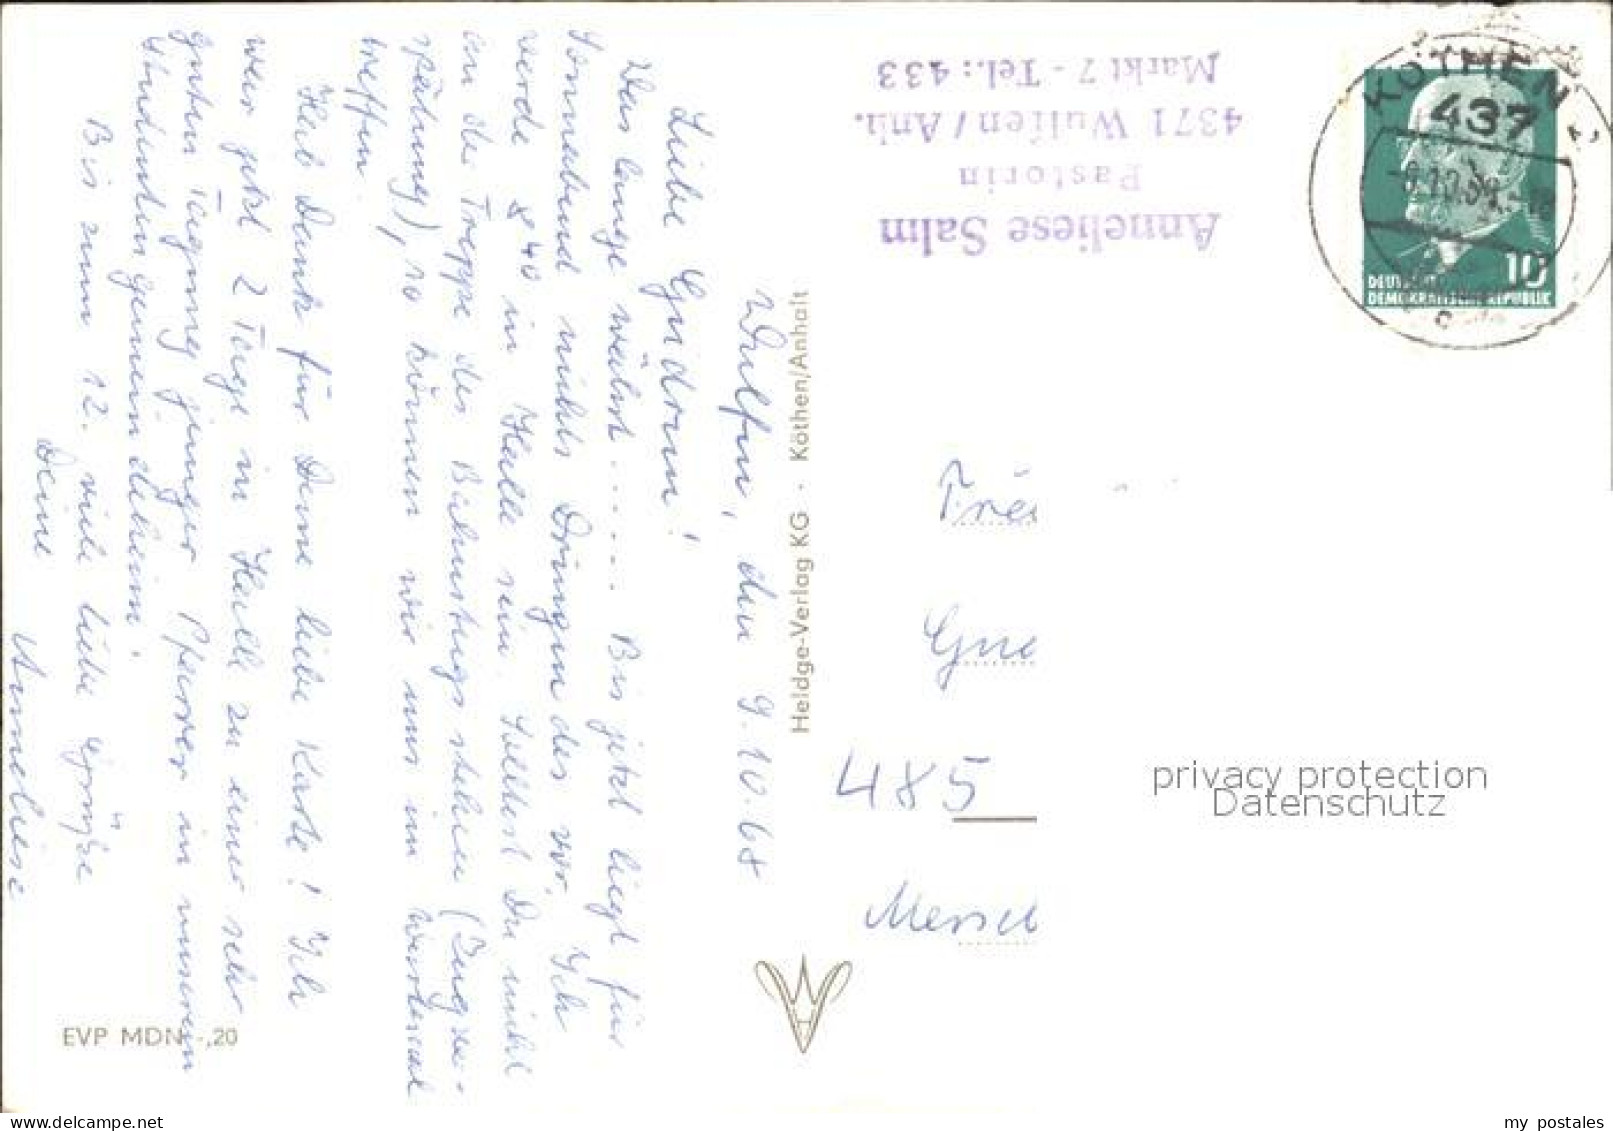 Wulfen, den 9.10.68
Liebe Gudrun!
Was lange währt..... Bis jetzt liegt für
Sonnabend nichts Dringendes vor. Ich
werde 8⁴⁰ in Halle sein. Solltest Du nicht
an der Treppe des Bahnsteigs stehen (Zugver-
spätung), so können wir uns im Wartesaal
treffen.
Hab Dank für Deine liebe Karte! Ich
war jetzt 2 Tage in Halle zu einer sehr
guten Tagung junger Pfarrer in unserem
Studentengemeindeheim.
Bis zum 12. viele liebe Grüße
Deine
Anneliese
EVP MDN -,20
Heldge-Verlag KG · Köthen/Anhalt
Anneliese Salm
Pastorin
4371 Wulfen/Anh.
Markt 7 - Tel.: 433
KÖTHEN
437
10
DEUTSCHE
DEMOKRATISCHE REPUBLIK
485
Merseb
privacy protection
Datenschutz
www.delcampe.net
my_postales